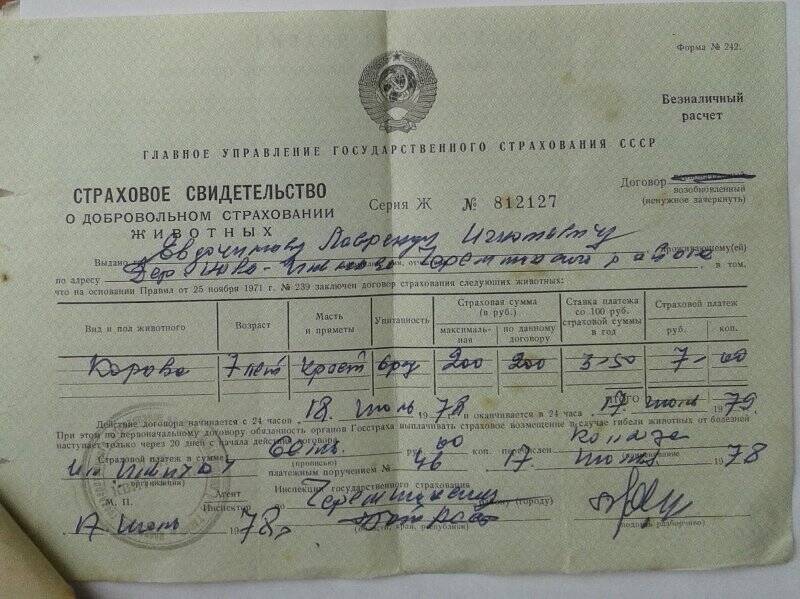 Форма № 242.
Безналичный
расчет
ГЛАВНОЕ УПРАВЛЕНИЕ ГОСУДАРСТВЕННОГО СТРАХОВАНИЯ СССР
СТРАХОВОЕ СВИДЕТЕЛЬСТВО
О ДОБРОВОЛЬНОМ СТРАХОВАНИИ
ЖИВОТНЫХ
Серия Ж № 812127
Договор
возобновленный
(ненужное зачеркнуть)
Выдано Евдокимову Лаврентию Игнатьевичу проживающему(ей)
по адресу Дер в том,
что на основании Правил от 25 ноября 1971 г. № 239 заключен договор страхования следующих животных:
Вид и пол животного Возраст Масть и приметы Упитанность Страховая сумма (в руб.) максимальная по данному договору Ставка платежа со 100 руб. страховой суммы в год Страховой платеж руб. коп.
Корова 7 лет красн сред 200 200 3-50 7- 00
Итого
Действие договора начинается с 24 часов 18 июль 1978 и оканчивается в 24 часа июль 1979.
При этом по первоначальному договору обязанность органов Госстраха выплачивать страховое возмещение в случае гибели животных от болезней
наступает только через 20 дней с начала действия договора
Страховой платеж в сумме Семь руб. 00 коп. перечислен
(прописью)
платежным поручением № 46 17 1978
(организация)
М. П.
Агент
Инспектор
Инспекции государственного страхования
по району (городу)
(области, края, республики)
1978г
(подпись разборчиво)